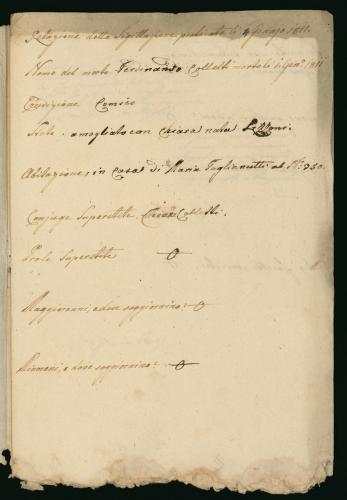 Relazione della Sigillazione praticata li 4 Genajo 1811.
Nome del morto Ferdinando Colletti morto le li Gen.o 1811
Condizione Comico
Stato. amogliato con nata
Abitazione, in Casa di Maria al N.o 750.
Conjuge Superstite Colletti.
Prole Superstite O
Maggiorenni, e dove soggiornino? O
Minorenni, e dove soggiornino? O